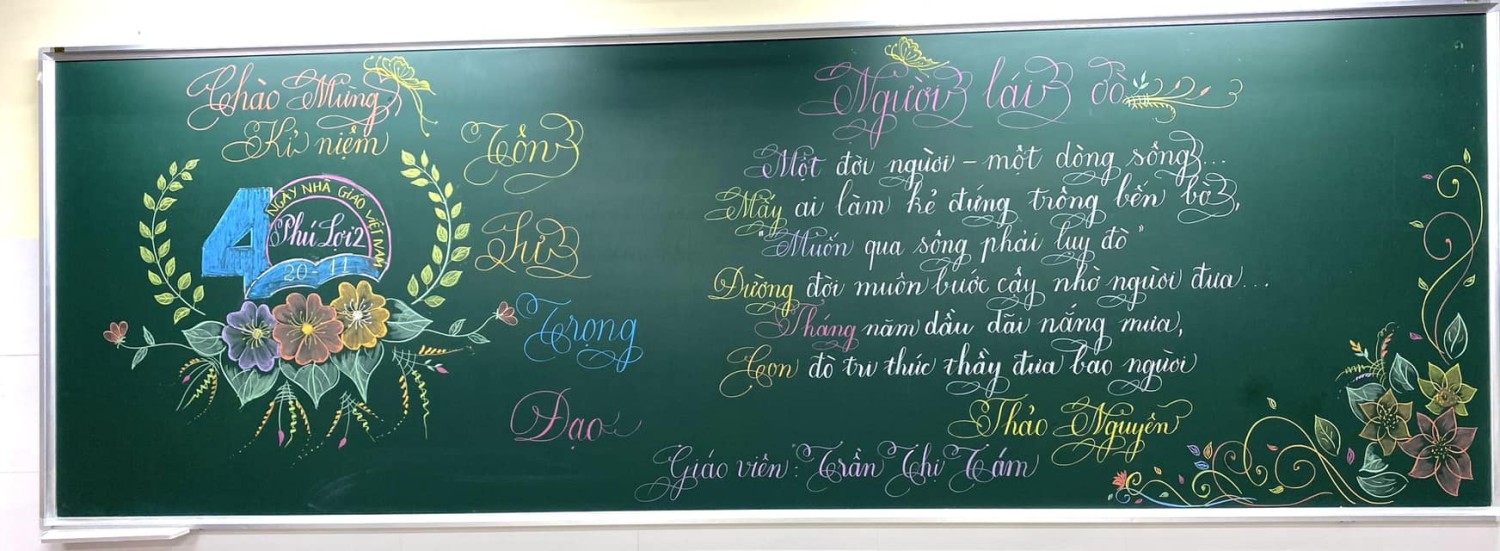 Chào Mừng
Kỉ niệm
40
NGÀY NHÀ GIÁO VIỆT NAM
Phú Lợi 2
20-11
Tôn
Sư
Trọng
Đạo
Người lái đò
Một đời người – một dòng sông...
Mấy ai làm kẻ đứng trông bến bờ,
"Muốn qua sông phải luỵ đò"
Đường đời muôn bước cậy nhờ người đưa...
Tháng năm dầu dãi nắng mưa,
Con đò tri thức thầy đưa bao người
Thảo Nguyên
Giáo viên: Trần Thị Tám